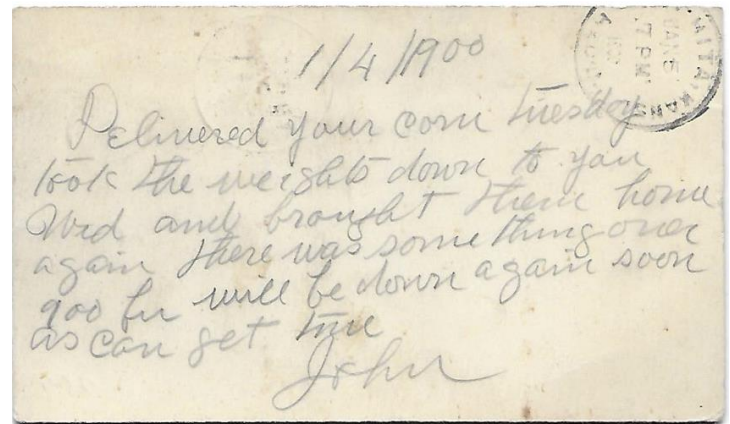 1/4/1900
Delivered your corn Tuesday
took the weights down to you
Wed and brought them home
again there was something over
900 bu will be down again soon
as can get time
John
WITA, KANS
JAN 5
7 PM